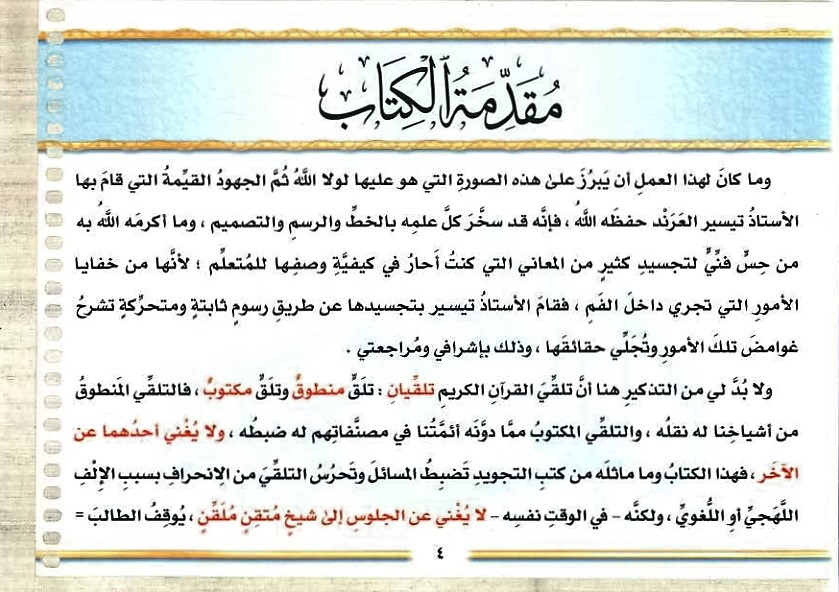 مُقَدِّمَةُ ٱلْكِتَابِ
وما كانَ لهذا العملِ أن يَبرُزَ علىٰ هذه الصورةِ التي هو عليها لولا اللَّهُ ثُمَّ الجهودُ القيِّمةُ التي قامَ بها
الأستاذُ تيسير العَرَنْد حفظَه اللَّهُ ، فإنَّه قد سخَّرَ كلَّ علمِه بالخطِّ والرسمِ والتصميم ، وما أكرمَه اللَّهُ به
من حِسٍّ فنِّيٍّ لتجسيدِ كثيرٍ من المعاني التي كنتُ أَحارُ في كيفيَّةِ وصفِها للمُتعلِّم ؛ لأنَّها من خفايا
الأمورِ التي تجري داخلَ الفَمِ ، فقامَ الأستاذُ تيسير بتجسيدها عن طريقِ رسومٍ ثابتةٍ ومتحرِّكةٍ تشرحُ
غوامضَ تلكَ الأمورِ وتُجَلِّي حقائقَها ، وذلك بإشرافي ومُراجعتي .
ولا بُدَّ لي من التذكيرِ هنا أنَّ تلقِّيَ القرآنِ الكريمِ تلقِّيانِ : تلَقٍّ منطوقٌ وتلَقٍّ مكتوبٌ ، فالتلقِّي المَنطوقُ
من أشياخِنا له نقلُه ، والتلقِّي المكتوبُ ممَّا دوَّنَه أئمَّتُنا في مصنَّفاتِهم له ضبطُه ، ولا يُغْني أحدُهما عن
الآخَرِ ، فهذا الكتابُ وما ماثلَه من كتبِ التجويدِ تَضبِطُ المسائلَ وتَحرُسُ التلقِّيَ من الانحرافِ بسببِ الإلْفِ
اللَّهجيِّ أو اللُّغويِّ ، ولكنَّه – في الوقتِ نفسِه – لا يُغْني عن الجلوسِ إلىٰ شيخٍ مُتقِنٍ مُلَقِّنٍ ، يُوقِفُ الطالبَ =
٤